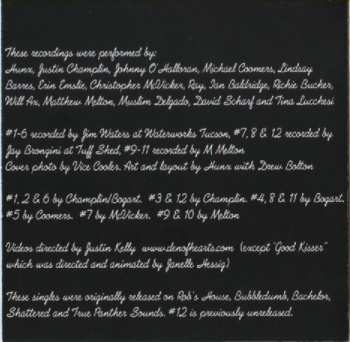 These recordings were performed by:
Hunx, Justin Champlin, Johnny O'Halloran, Michael Coomers, Lindsay
Barres, Erin Emslie, Christopher McVicker, Ray, Ian Baldridge, Richie Bucker,
Will Ax, Matthew Melton, Muslim Delgado, David Scharf and Tina Lucchesi
#1-6 recorded by Jim Waters at Waterworks Tucson, #7, 8 & 12 recorded by
Jay Bronzini at Tuff Shed, #9-11 recorded by M Melton
Cover photo by Vice Cooler. Art and layout by Hunx with Drew Bolton
#1, 2 & 6 by Champlin/Bogart. #3 & 12 by Champlin. #4, 8 & 11 by Bogart.
#5 by Coomers. #7 by McVicker. #9 & 10 by Melton
Videos directed by Justin Kelly www.denofhearts.com (except "Good Kisser"
which was directed and animated by Janelle Hessig)
These singles were originally released on Rob's House, Bubbledumb, Bachelor,
Shattered and True Panther Sounds. #12 is previously unreleased.